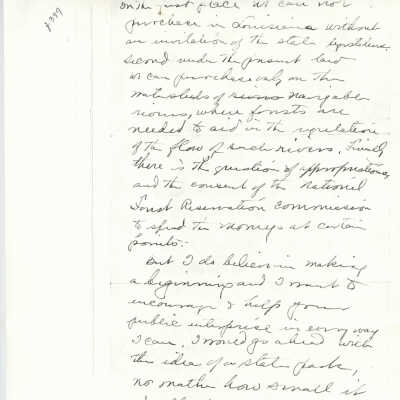 p 399
On the first place we can not
purchase in Louisiana without
an invitation of the state legislature,
second under the present law
we can purchase only on the
watersheds of navigable
rivers, where forests are
needed to aid in the regulation
of the flow of such rivers. Finally
there is the question of appropriations,
and the consent of the National
Forest Reservation Commission
to spend the moneys at certain
points.
But I do believe in making
a beginning and I want to
encourage & help your
public enterprise in every way
I can. I would go ahead with
the idea of a state park,
no matter how small it